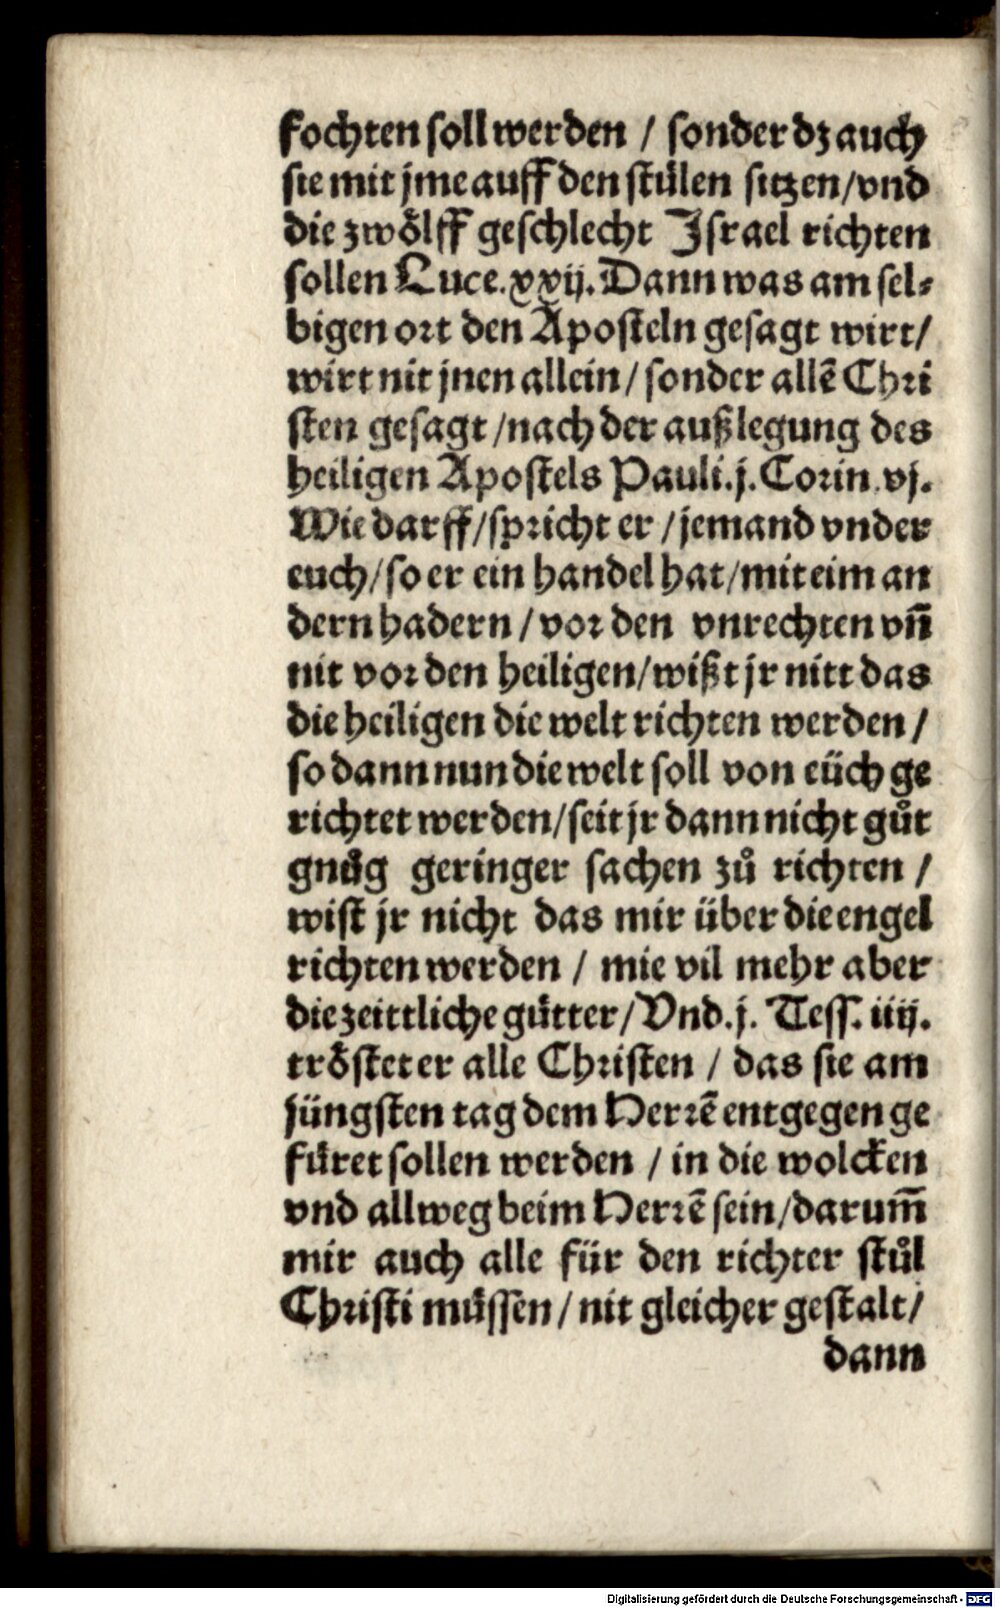 fochten soll werden / sonder dz auch
sie mit jme auff den stülen sitzen/vnd
die zwoͤlff geschlecht Israel richten
sollen Luce.xxij. Dann was am sel⸗
bigen ort den Aposteln gesagt wirt/
wirt nit jnen allein/ sonder allē Chri
sten gesagt /nach der außlegung des
heiligen Apostels Pauli.j. Corin.vj.
Wie darff/spricht er /jemand vnder
euch/so er ein handel hat/mit eim an
dern hadern / vor den vnrechten vn̄
nit vor den heiligen/wißt jr nitt das
die heiligen die welt richten werden /
so dann nun die welt soll von eüch ge
richtet werden/seit jr dann nicht guͦt
gnuͦg geringer sachen zuͦ richten /
wist jr nicht das mir über die engel
richten werden / mie vil mehr aber
die zeittliche guͤtter/ Vnd.j. Tess. iiij.
troͤstet er alle Christen / das sie am
jüngsten tag dem Herrē entgegen ge
fuͤret sollen werden / in die wolcken
vnd allweg beim Herrē sein/darum̄
mir auch alle für den richter stuͦl
Christi muͤssen / nit gleicher gestalt/
dann
Digitalisierung gefördert durch die Deutsche Forschungsgemeinschaft - DFG